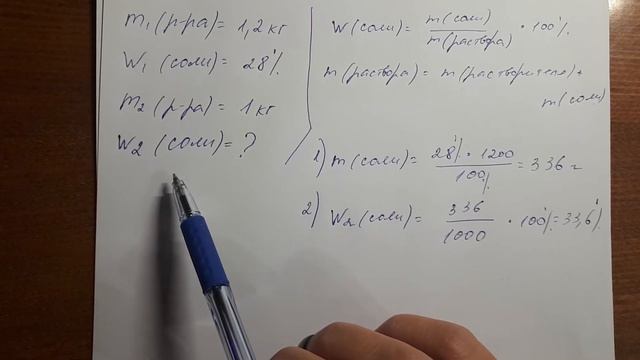 m₁ (р-ра) = 1,2 кг
W₁ (соли) = 28%
m₂ (р-ра) = 1 кг
W₂ (соли) = ?
W (соли) = m(соли) / m(раствора) · 100%
m (раствора) = m(растворителя) +
m(соли)
1) m(соли) = 28% · 1200 / 100% = 336 г
2) W₂ (соли) = 336 / 1000 · 100% = 33,6%